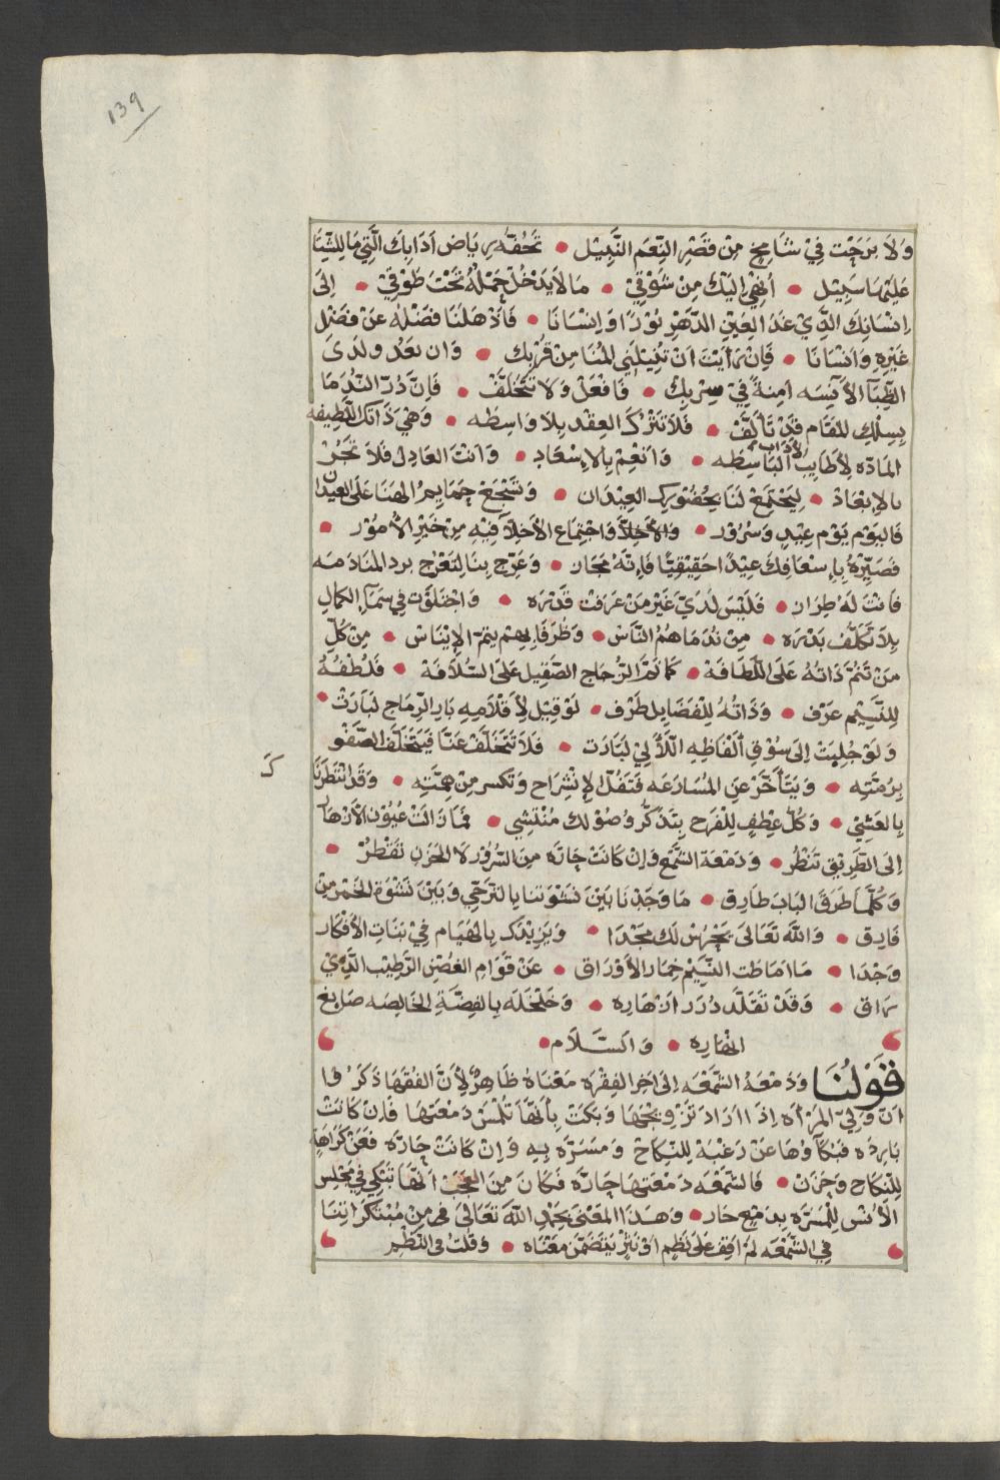 139
وَلاَ بَرَحْتَ فِيْ شَامِخٍ مِنْ قَصْرِ النِّعَمِ النَّبِيْلِ • تَحُفُّهُ رِيَاضُ آدَابِكَ الَّتِيْ مَا لِلشِّتَا
عَلَيْهَا سَبِيْل • أُنْهِيْ إِلَيْكَ مِنْ شَوْقِيْ • مَا لاَ يَدْخُلُ حَمْلُهُ تَحْتَ طَوْقِيْ • إِلَى
إِنْسَانِكَ الَّذِيْ غَدَا لِعَيْنِ الدَّهْرِ نُوْرًا وَإِنْسَانَا • فَأَذْهَلَنَا فَضْلُهُ عَنْ فَضْلِ
غَيْرِهِ وَأَنْسَانَا • فَإِنْ رَأَيْتَ أَنْ تُنِيْلَنِي الْمُنَا مِنْ قُرْبِك • وَان تَعُدْ وَلَدَى
الظِّبَآ الأَنِيْسَه آمِنَةً فِيْ سِرْبِكْ • فَافْعَلْ وَلاَ تَتَخَلَّفْ • فَإِنَّ دُرَّ النُّدَمَا
بِسِلْكِ الْمَقَام قَدْ تَأَلَّفْ • فَلاَ تَتْرُكْ العِقْد بِلاَ وَاسِطَه • وَهْيَ ذَاتك اللَّطِيفه
المَادّه لِأَطَايِبِ الآدَابِ البَاسِطَه • وَانْعِمْ بِالإِسْعَادِ • وَأَنْتَ العَادِل فَلاَ تَجُرْ
بالإِبْعَادْ • لِيَجْتَمِعْ لَنَا بِحُضُوْرِك العِيْدَان • وَتَسْجَعْ حَمَايِمُ الهَنَا عَلَى العِيْدان
فَاليَوْم يَوْم عِيْدٍ وَسُرُور • وَالأَخِلاَّ وَاجْتِمَاع الأَخِلاَّ فِيْهِ مِنْ خَيْرِ الأُمُوْر •
فَصَيِّرْهُ بِإِسْعَافِكَ عِيْدًا حَقِيْقِيًّا فَإِنَّهُ مَجَاز • وَعَرِّج بِنَا لِنَعْرُج برد المُنَادَمَه
فَأَنْتَ لَهُ طِرَاز • فَلَيْسَ لَدَيَّ غَيْرُ مَنْ عَرَفْت قَدْرَه • وَاجْتَلَوْت فِي سَمَآءِ الكَمَالِ
بِلاَ تَكَلُّف بَدْرَه • مِنْ نُدَمَا هُمُ النَّاسْ • وَظُرَفَا بِهِم يتم الإِيْنَاسْ • مِنْ كُلِّ
مَنْ تَنُمّ ذَاتُهُ عَلَى اللَّطَافَهْ • كَمَا نَمَّ الزُّجَاج الصَّقِيل عَلَى السُّلاَفَهْ • فَلُطْفُهُ
لِلنَّسِيْم عَرْف • وَذَاتُهُ لِلْفَضَايِل طَرْف • لَوْ قِيْلَ لِأَقْلاَمِهِ بَارِ الرِّمَاحِ لَبَارَتْ •
وَلَوْ جُلِبَتْ إِلَى سُوْقِ أَلْفَاظِهِ اللَّآلِيْ لَبَارَت • فَلاَ تَتَخَلَّفْ عَنَّا فَيَتَخَلَّفَ الصَّفْو
بِرُمَّتِه • وَيَتَأَخَّرْ عَنِ المُسَارَعَه فَتَفُلّ الإِنْشِرَاح وَتكسر مِنْ هِمَّتِه • وَقَد انْتَظَرْنَا
بِالعَشِيّ • وَكُلُّ عِطْفٍ لِلْفَرَحِ بِتَذَكُّرِ وُصُوْلك مُنْتَشِي • فَمَا زَالَتْ عُيُوْن الأَزْهَار
إِلَى الطَّرِيْقِ تَنْظُرْ • وَدَمْعَة الشَّمْع وَإِنْ كَانَتْ حَارَّه مِنَ السُّرُوْر لاَ الحُزْنِ تَقْطُرْ •
وَكُلَّمَا طَرَقَ البَابَ طَارِق • مَا وَجَدْنَا بَيْنَ نَشْوَتنا بِالتَّرَجِّي وَبَيْنَ نَشْوَة الخَمْر مِنْ
فَارِق • وَاللهُ تَعَالَى يَحْرُسْ لَكَ مَجْدَا • وَيَزِيْدَك بِالهُيَامِ فِيْ بَنَاتِ الأَفْكَار
وَجْدَا • مَا أَمَاطَت النَّسِيْمْ خِمَار الأَوْرَاق • عَنْ قَوَامِ الغُصْنِ الرَّطِيْبِ الَّذِيْ
رَاق • وَقَدْ تَقَلَّد دُرَر أَزْهَارِه • وَخَلْخَلَه بِالفِضَّةِ الخَالِصَه صَايِغ
انْهَارِه • وَالسَّلاَم •
قَوْلُنَا وَدَمْعَهُ الشَّمْعَه إِلَى آخِرِ الفِقْرَه مَعْنَاهُ ظَاهِرٌ لِأَنَّ الفُقَهَا ذَكَرُوا
أَنَّ وَلِيَّ المَرْأَه إِذَا ارَادَ تَزْوِيْجَهَا وَبَكَتْ بِأَنَّهَا تُلْمَسْ دَمْعَتهَا فَإِنْ كَانَتْ
بَارِدَه فَبُكَآؤُهَا عَنْ رَغْبَهْ لِلنِّكَاحْ وَمَسَرَّه بِهِ وَإِنْ كَانَتْ حَارَّه فَعَنْ كَرَاهَهٍ
لِلنِّكَاحِ وَحُزْن • فَالشَّمْعَه دَمْعَتهَا حَارَّه فَكَانَ مِنَ العَجَب أَنَّهَا تَبْكِي فِي مَجْلِس
الأُنْس لِلْمَسَرَّه بِدَمْعٍ حَار • وَهَذَا المَعْنَى بِحَمْدِ اللهِ تَعَالَى هو مِنْ مُبْتَكَرَاتِنَا
فِي الشَّمْعَه لَمْ أَقِفْ عَلَى نَظْمٍ أَوْ نَثْرٍ يَتَضَمَّنْ مَعْنَاه • وَقُلْتُ فِي النَّظْمِ